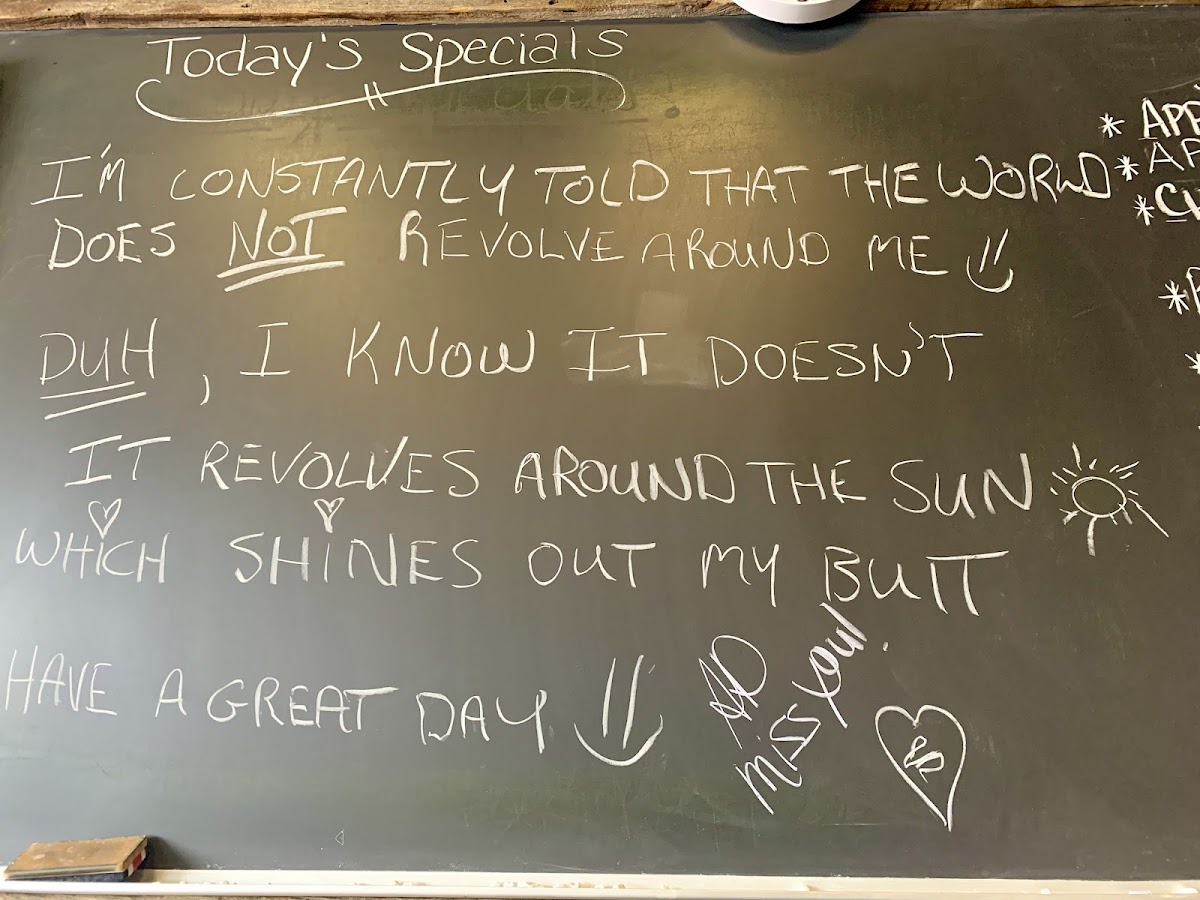 Today's Specials
I'M CONSTANTLY TOLD THAT THE WORLD
DOES NOT REVOLVE AROUND ME
DUH, I KNOW IT DOESN'T
IT REVOLVES AROUND THE SUN
WHiCH SHiNES OUT MY BUTT
HAVE A GREAT DAY
Miss You!